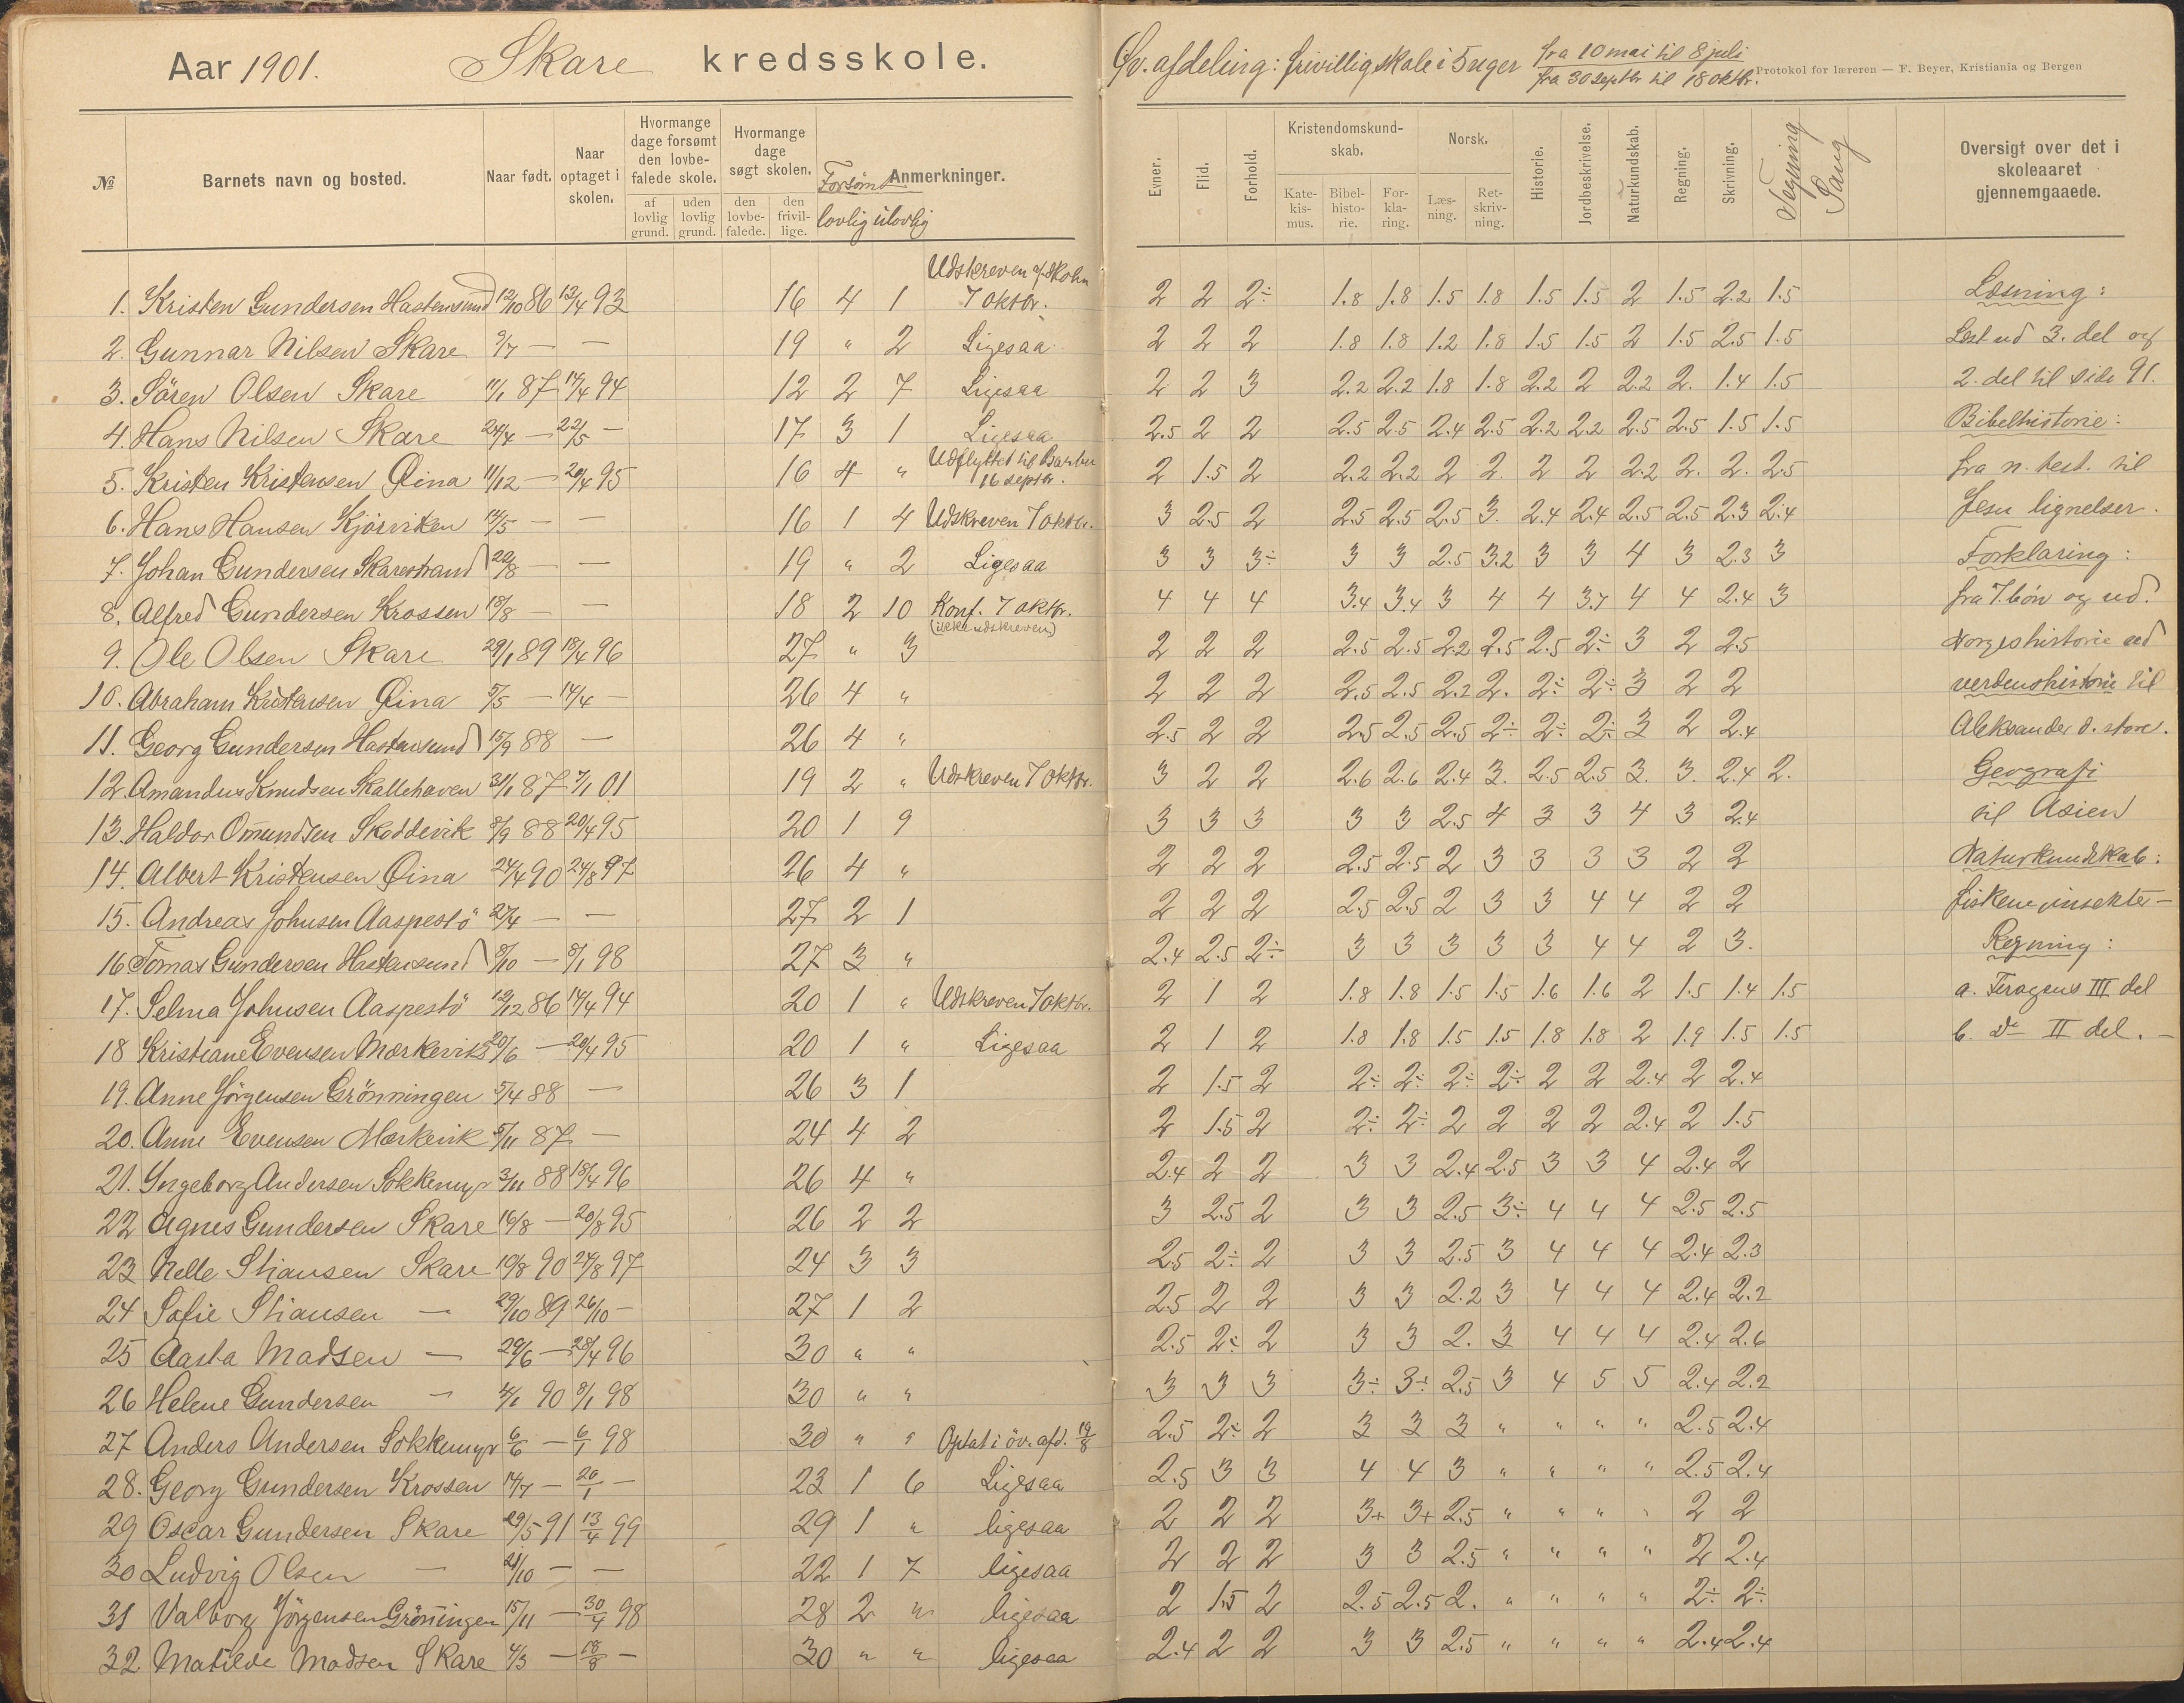 Aar 1901. Skare kredsskole.
Øv. afdeling: frivillig skole i 5 uger fra 10 mai til 8 juli
fra 30 septbr til 18 oktbr.
Protokol for læreren — F. Beyer, Kristiania og Bergen
№ Barnets navn og bosted. Naar født. Naar optaget i skolen. Hvormange dage forsømt den lovbefalede skole. af lovlig grund. uden lovlig grund. Hvormange dage søgt skolen. den lovbefalede. den frivillige. Forsømt lovlig ulovlig Anmerkninger.
Evner. Flid. Forhold. Kristendomskundskab. Katekismus. Bibelhistorie. Forklaring. Norsk. Læsning. Retskrivning. Historie. Jordbeskrivelse. Naturkundskab. Regning. Skrivning. Tegning Sang Oversigt over det i skoleaaret gjennemgaaede.
1. Kristen Gundersen Hastensund 12/10 86 12/4 93 16 4 1 Udskreven af skolen 7 oktbr. 2 2 2÷ 1.8 1.8 1.5 1.8 1.5 1.5 2 1.5 2.2 1.5 Læsning:
2. Gunnar Nilsen Skare 9/7 — — 19 " 2 Ligesaa 2 2 2 1.8 1.8 1.2 1.8 1.5 1.5 2 1.5 2.5 1.5 Lest ud 3. del og
3. Sören Olsen Skare 11/1 87 14/4 94 12 2 7 Ligesaa 2 2 3 2.2 2.2 1.8 1.8 2.2 2 2.2 2. 1.4 1.5 2. del til side 91.
4. Hans Nilsen Skare 24/4 — 22/5 — 17 3 1 Ligesaa 2.5 2 2 2.5 2.5 2.4 2.5 2.2 2.2 2.5 2.5 1.5 1.5 Bibelhistorie:
5. Kristen Kristensen Qina 11/12 — 20/4 95 16 4 " Udflyttet til Barbu 16 septbr. 2 1.5 2 2.2 2.2 2 2. 2 2 2.2 2. 2. 2.5 fra n. test. til
6. Hans Hansen Kjörviken 14/5 — — 16 1 4 Udskreven 7 oktbr. 3 2.5 2 2.5 2.5 2.5 3. 2.4 2.4 2.5 2.5 2.3 2.4 Jesu lignelser.
7. Johan Gundersen Skarestrand 20/8 — — 19 " 2 Ligesaa 3 3 3÷ 3 3 2.5 3.2 3 3 4 3 2.3 3 Forklaring:
8. Alfred Gundersen Krossen 18/8 — — 18 2 10 Konf. 7 oktbr. (ikke udskreven) 4 4 4 3.4 3.4 3 4 4 3.7 4 4 2.4 3 fra 7. bön og ud.
9. Ole Olsen Skare 29/1 89 18/4 96 27 " 3 2 2 2 2.5 2.5 2.2 2.5 2.5 2÷ 3 2 2.5 Norgeshistorie ud
10. Abraham Kristensen Qina 5/5 — 14/4 — 26 4 " 2 2 2 2.5 2.5 2.2 2. 2÷ 2÷ 3 2 2 verdenshistorie til
11. Georg Gundersen Hastensund 15/9 88 — 26 4 " 2.5 2 2 2.5 2.5 2.5 2÷ 2÷ 2÷ 3 2 2.4 Aleksander d. store.
12. Amandus Knudsen Skallehaven 31/1 87 7/1 01 19 2 " Udskreven 7 oktbr. 3 2 2 2.6 2.6 2.4 3. 2.5 2.5 3. 3. 2.4 2. Geografi
13. Haldor Omundsen Skoddevik 8/9 88 20/4 95 20 1 9 3 3 3 3 3 2.5 4 3 3 4 3 2.4 til Asien
14. Albert Kristensen Qina 24/4 90 24/8 97 26 4 " 2 2 2 2.5 2.5 2 3 3 3 3 2 2 Naturkundskab:
15. Andreas Johnsen Aaspestö 27/4 — — 27 2 1 2 2 2 2.5 2.5 2 3 3 4 4 2 2 fiskene, insekter —
16. Tomas Gundersen Hastensund 8/10 — 8/1 98 27 3 " 2.4 2.5 2÷ 3 3 3 3 3 4 4 2 3. Regning:
17. Selma Johnsen Aaspestö 12/12 86 14/4 94 20 1 " Udskreven 7 oktbr. 2 1 2 1.8 1.8 1.5 1.5 1.6 1.6 2 1.5 1.4 1.5 a. III del
18 Kristiane Evensen Mærkevik 20/6 — 20/4 95 20 1 " Ligesaa 2 1 2 1.8 1.8 1.5 1.5 1.8 1.8 2 1.9 1.5 1.5 b. do II del. —
19. Anne Jörgensen Grönningen 5/4 88 — 26 3 1 2 1.5 2 2÷ 2÷ 2÷ 2÷ 2 2 2.4 2 2.4
20. Anne Evensen Mærkevik 5/11 87 — 24 4 2 2 1.5 2 2÷ 2÷ 2 2 2 2 2.4 2 1.5
21. Ingeborg Andersen Sokkemyr 3/11 88 18/4 96 26 4 " 2.4 2 2 3 3 2.4 2.5 3 3 4 2.4 2
22 Agnes Gundersen Skare 16/8 — 20/8 95 26 2 2 3 2.5 2 3 3 2.5 3÷ 4 4 4 2.5 2.5
23 Nelle Stiansen Skare 10/8 90 24/8 97 24 3 3 2.5 2÷ 2 3 3 2.5 3 4 4 4 2.4 2.3
24 Sofie Stiansen — 29/10 89 26/10 — 27 1 2 2.5 2 2 3 3 2.2 3 4 4 4 2.4 2.2
25 Aasta Madsen — 29/6 — 28/4 96 30 " " 2.5 2÷ 2 3 3 2. 3 4 4 4 2.4 2.6
26 Helene Gundersen — 4/1 90 8/1 98 30 " " 3 3 3 3÷ 3÷ 2.5 3 4 5 5 2.4 2.2
27 Anders Andersen Sokkemyr 6/6 — 6/1 98 30 " " Optat i öv. afd. 19/8 2.5 2÷ 2 3 3 3 " " " " 2.5 2.4
28. Georg Gundersen Krossen 14/7 — 20/1 — 23 1 6 Ligesaa 2.5 3 3 4 4 3 " " " " 2.5 2.4
29 Oscar Gundersen Skare 29/5 91 13/4 99 29 1 " ligesaa 2 2 2 3+ 3+ 2.5 " " " " 2 2
30 Ludvig Olsen — 21/10 — — 22 1 7 ligesaa 2 2 2 3 3 2.5 " " " " 2 2.4
31 Valborg Jörgensen Grönningen 15/11 — 30/4 98 28 2 " ligesaa 2 1.5 2 2.5 2.5 2. " " " " 2÷ 2÷
32 Matilde Madsen Skare 4/3 — 18/8 — 30 " " ligesaa 2.4 2 2 3 3 2.5 " " " " 2.4 2.4